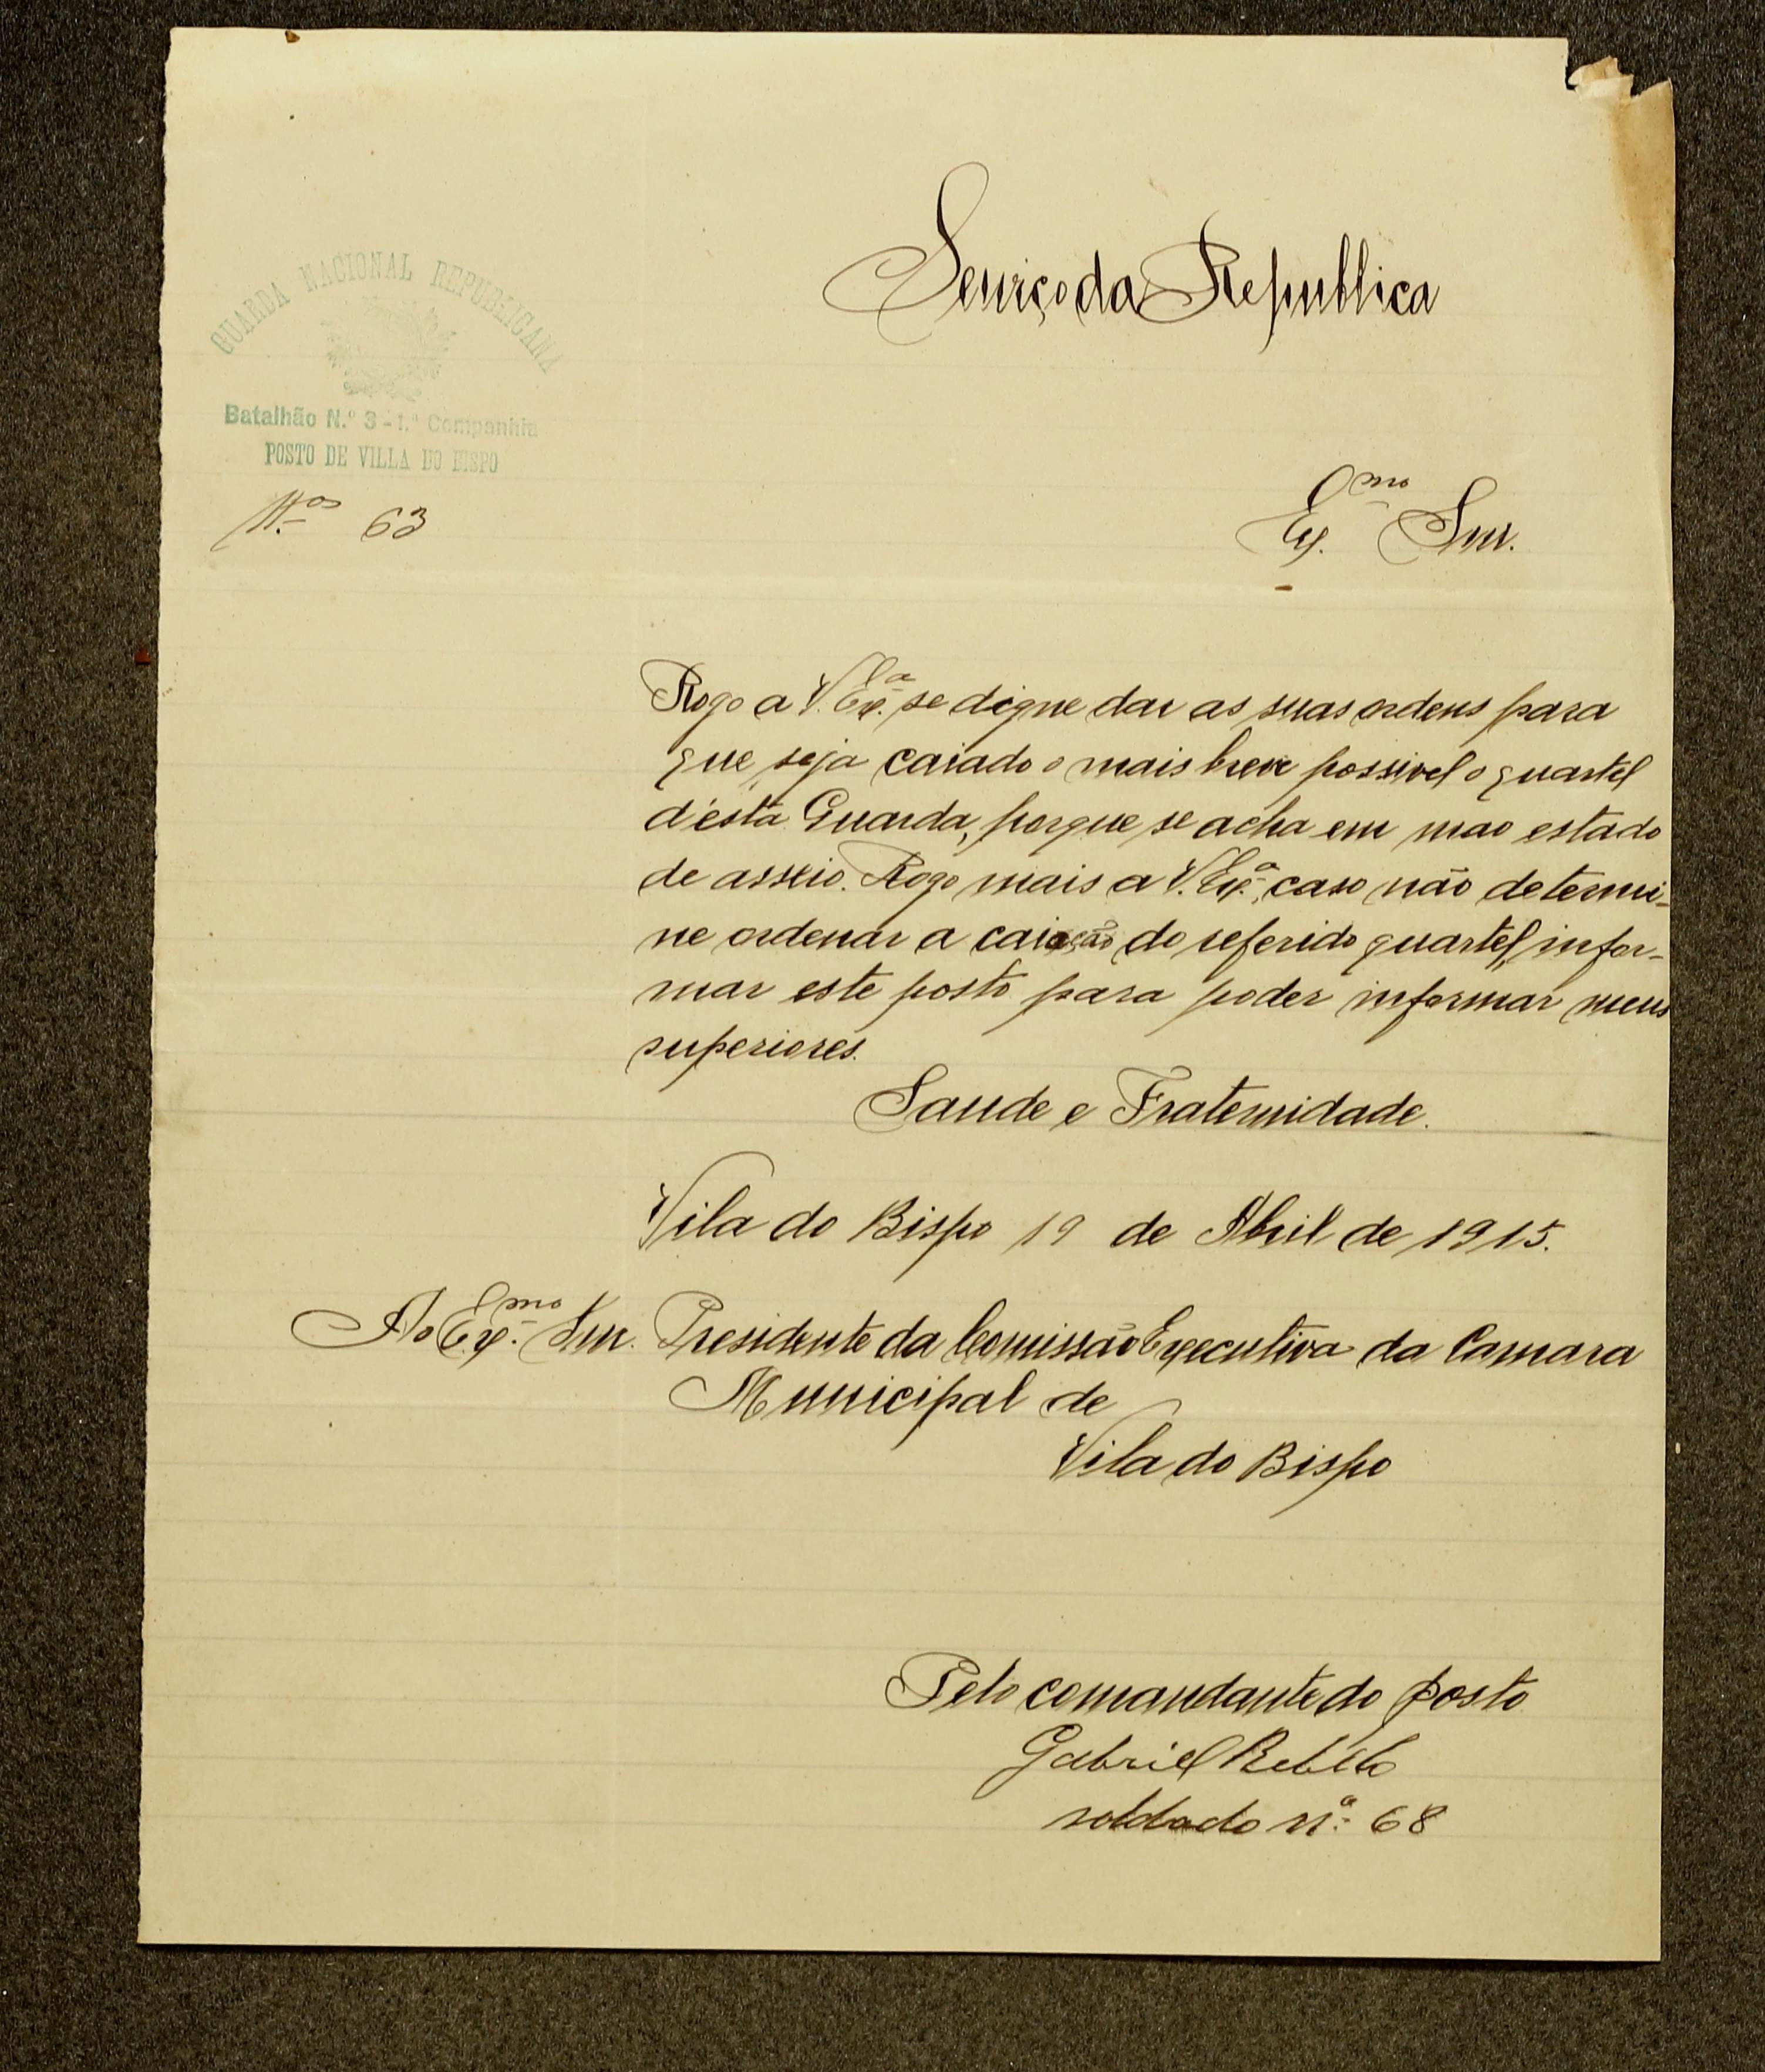 Serviço da Republica
GUARDA NACIONAL REPUBLICANA
Batalhão N.º 3 - 1.ª Companhia
POSTO DE VILLA DO BISPO
N.º 63
Ex.mo Snr.
Rogo a V. Ex.a se digne dar as suas ordens para
que seja caiado o mais breve possivel o quartel
d'ésta Guarda, porque se acha em mao estado
de asseio. Rogo mais a V. Ex.a, caso não determi-
ne ordenar a caiação do referido quartel, infor-
mar este posto para poder informar meus
superiores.
Saude e Fraternidade.
Vila do Bispo 19 de Abril de 1915.
Ao Ex.mo Snr. Presidente da Comissão Executiva da Camara
Municipal de
Vila do Bispo
Pelo comandante do posto
Gabriel Rebelo
soldado n.º 68